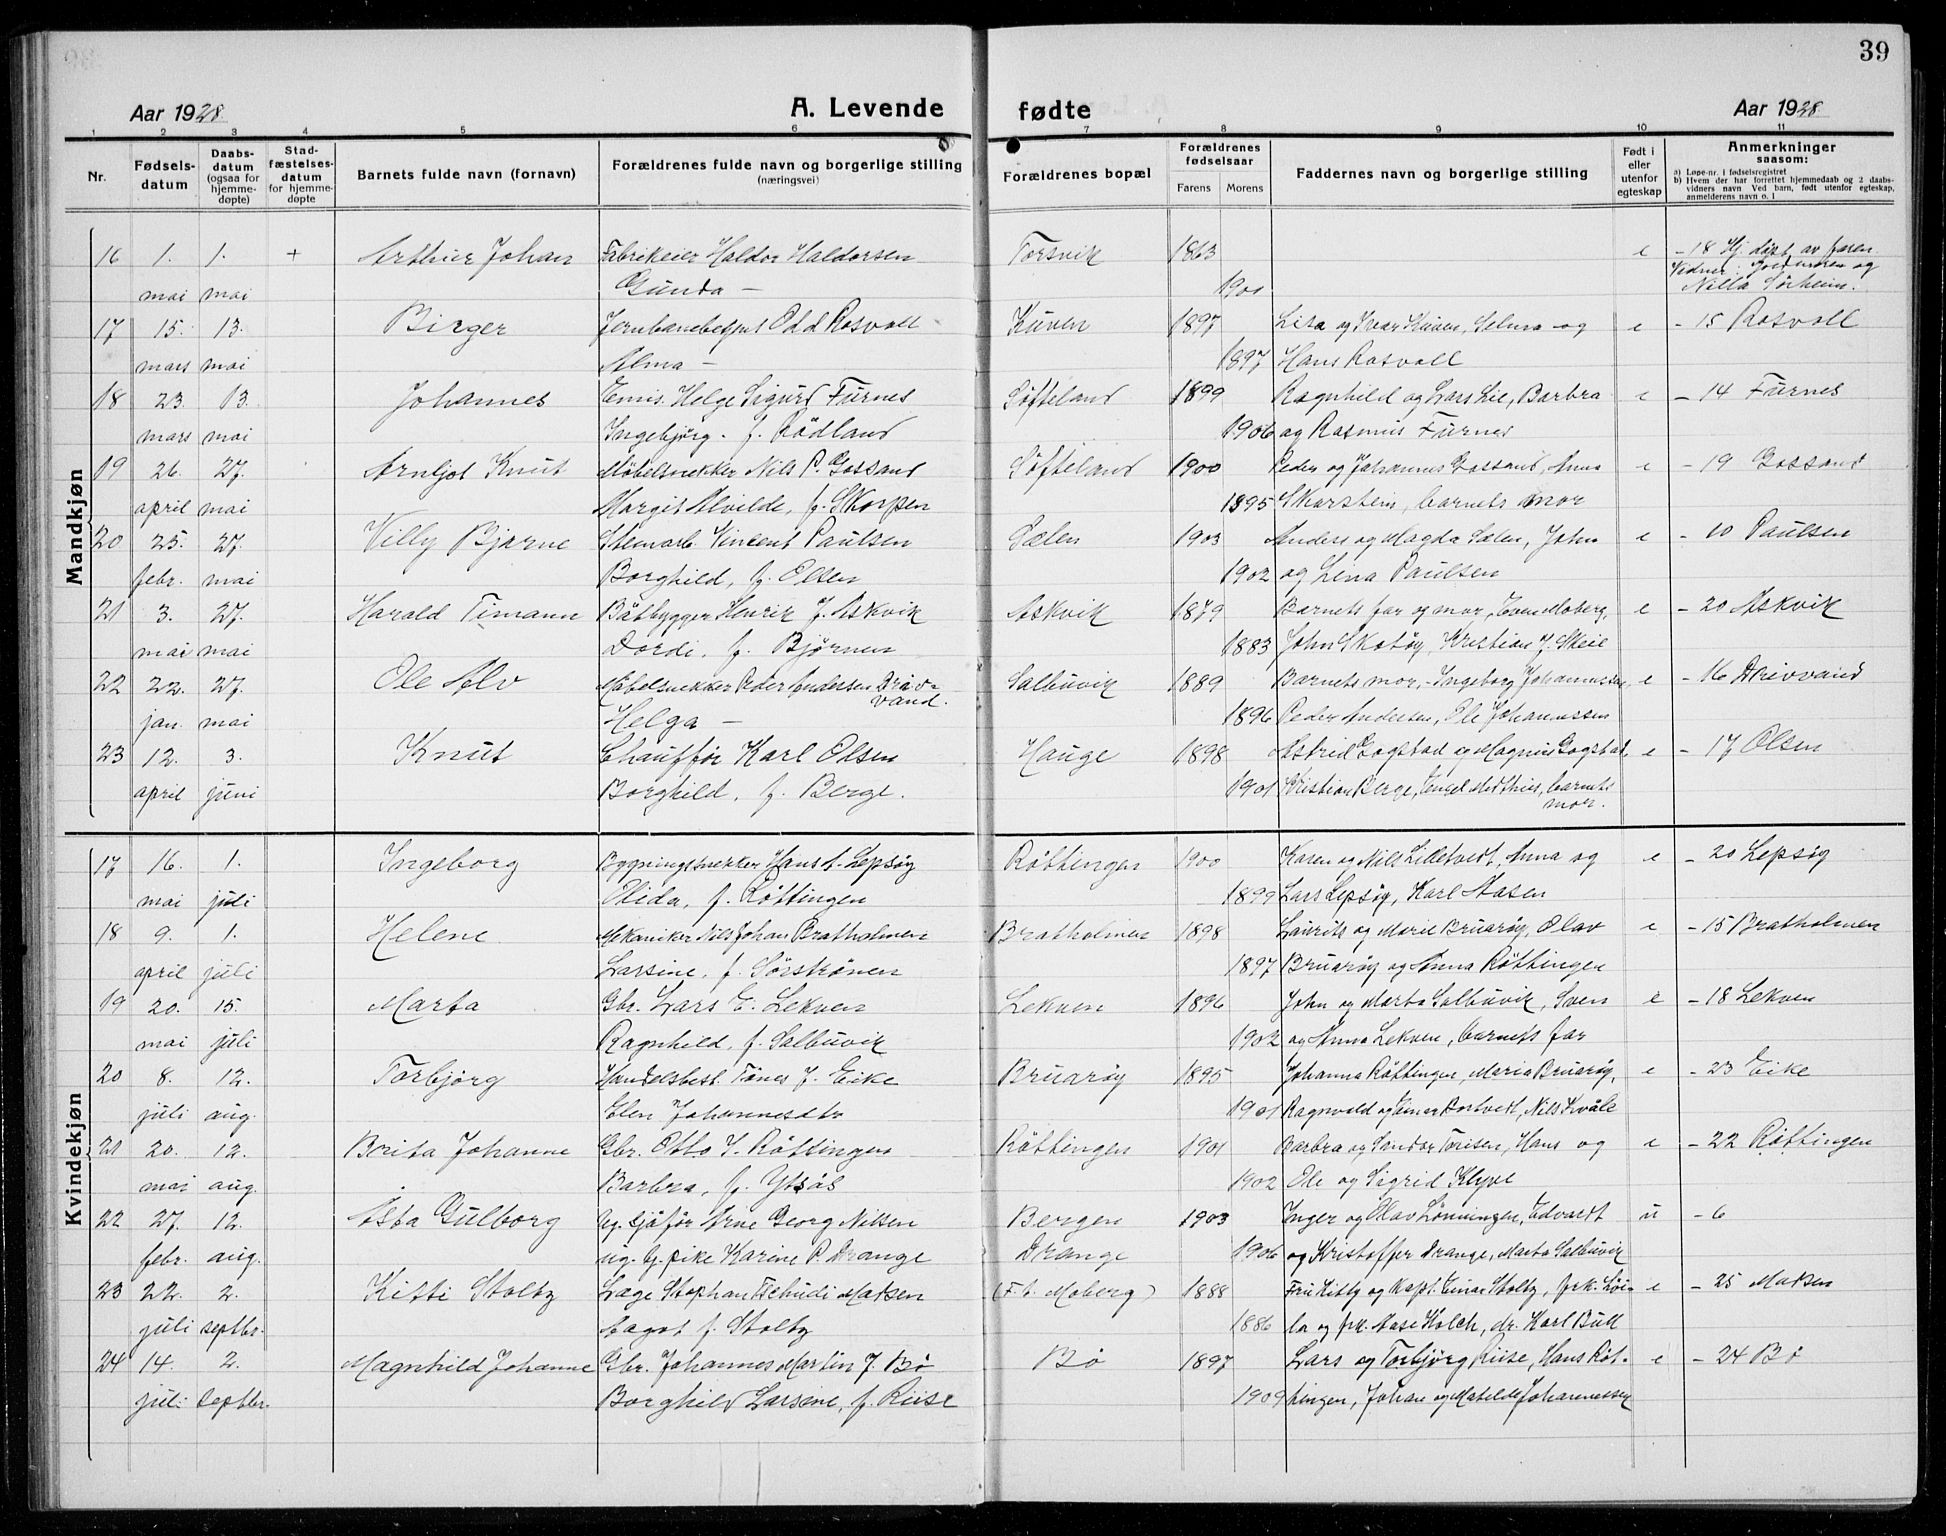 39
Aar 1928
A. Levende
fødte
Aar 1928
1 2 3 4 5 6 7 8 9 10 11
Nr.
Fødsels-
datum
Daabs-
datum
(ogsaa for
hjemme-
døpte)
Stad-
fæstelses-
datum
for hjemme-
døpte
Barnets fulde navn (fornavn)
Forældrenes fulde navn og borgerlige stilling
(næringsvei)
Forældrenes bopæl
Forældrenes
fødselsaar
Farens Morens
Faddernes navn og borgerlige stilling
Født i
eller
utenfor
egteskap
Anmerkninger
saasom:
a) Løpe-nr. i fødselsregistret
b) Hvem der har forrettet hjemmedaab og 2 daabs-
vidners navn Ved barn, født utenfor egteskap,
anmelderens navn o. l
Mandkjøn
16 1. 1. + Arthur Johan Fabrikeier Haldor Haldorsen Torsvik 1863 e - 18 Hj. døpt av faren
mai mai Gunda - 1900 Vidner: og
Nilla Sørheim.
17 15. 13. Birger Jernbanebetjent Odd Rosvoll Kuven 1897 Lisa og Ivar Kuven, Selma og e - 15 Rosvoll
mars mai Alma - 1897 Hans Rosvoll
18 23. 13. Johannes Emis. Helge Sigurd Furnes Søfteland 1899 Ragnhild og Lars Lie, Barbra e - 14 Furnes
mars mai Ingebjørg. f. Rødland 1906 og Rasmus Furnes
19 26. 27. Arnljot Knut Møbelsnekker Nils P. Gossand Søfteland 1900 Peder og Johannes Gossand, Anna e - 19 Gossand
april mai Margit Alvilde, f. Skorpen 1895 Skarstein, barnets mor
20 25. 27. Villy Bjarne Stenarb. Vincent Paulsen Sælen 1903 Anders og Magda Sælen, John e - 10 Paulsen
febr. mai Borghild, f. Olsen 1902 og Lena Paulsen
21 3. 27. Harald Timann Båtbygger Henrik J. Askvik Askvik 1879 Barnets far og mor, Even Moberg, e - 20 Askvik
mai mai Dordi, f. Bjørnen 1883 John Skotøy, Kristian J. Skeie
22 22. 27. Ole Alv Møbelsnekker Peder Andersen Driv-
vand. Salbuvik 1889 Barnets mor, Ingeborg Johannessen, e - 16 Drivvand
jan. mai Helga - 1896 Peder Andersen, Ole Johannessen
23 12. 3. Knut Chauffør Karl Olsen Hauge 1898 Astrid Gogstad og Magnus Gogstad, e - 17 Olsen
april juni Borghild, f. Berge. 1901 Kristian Berge, Engel Mathies, barnets
mor.
Kvindekjøn
17 16. 1. Ingeborg Bygningsnekker Hans A. Lepsøy Røttingen 1900 Karen og Nils Lilletvedt, Anna og e - 20 Lepsøy
mai juli Olida, f. Røttingen 1899 Lars Lepsøy, Karl Aasen
18 9. 1. Helene Mekaniker Nils Johan Bratholmen Bratholmen 1898 Laurits og Marie Bruarøy, Olav e - 15 Bratholmen
april juli Larsine, f. Sørskånen 1897 Bruarøy og Anna Røttingen
19 20. 15. Marta Gbr. Lars E. Lekven Lekven 1896 John og Marta Salbuvik, Sven e - 18 Lekven
mai juli Ragnhild, f. Salbuvik 1902 og Anna Lekven, barnets far
20 8. 12. Torbjørg Handelsbest. Tønes J. Eike Bruarøy 1895 Johanna Røttingen, Maria Bruarøy, e - 23 Eike
juli aug. Elen Johannesdtr 1901 Ragnvald og Einar Tortvedt, Nils Kvåle
21 20. 12. Borita Johanne Gbr. Otto J. Røttingen Røttingen 1901 Barbra og Sandor Tørisen, Hans og e - 22 Røttingen
mai aug. Barbra, f. Ytsøs 1902 Ole og Sigrid Klyve
22 27. 12. Asta Gulborg Ug. sjåfør Arne Georg Nilsen Bergen 1903 Inger og Olav Lønningen, Edvardt u - 6
febr. aug. ug. Gj. pike Karine P. Drange Drange 1906 og Kristoffer Drange, Marta Salbuvik
23 22. 2. Kitti Stolty Læge Stephan Tschudi Madsen (F. t. Moberg) 1888 Fru Kitty og kapt. Einar Stolty, frk. e - 25 Madsen
juli septbr. Aagot f. Stolty 1886 og frk. Aase Holch, dr. Karl Bull
24 14. 2. Magnhild Johanne Gbr. Johannes Martin J. Bø Bø 1897 Lars og Torbjørg Riise, Hans Røt- e - 24 Bø
juli septbr. Borghild Larsine, f. Riise 1909 tingen, Johan og Matilde Johannessen